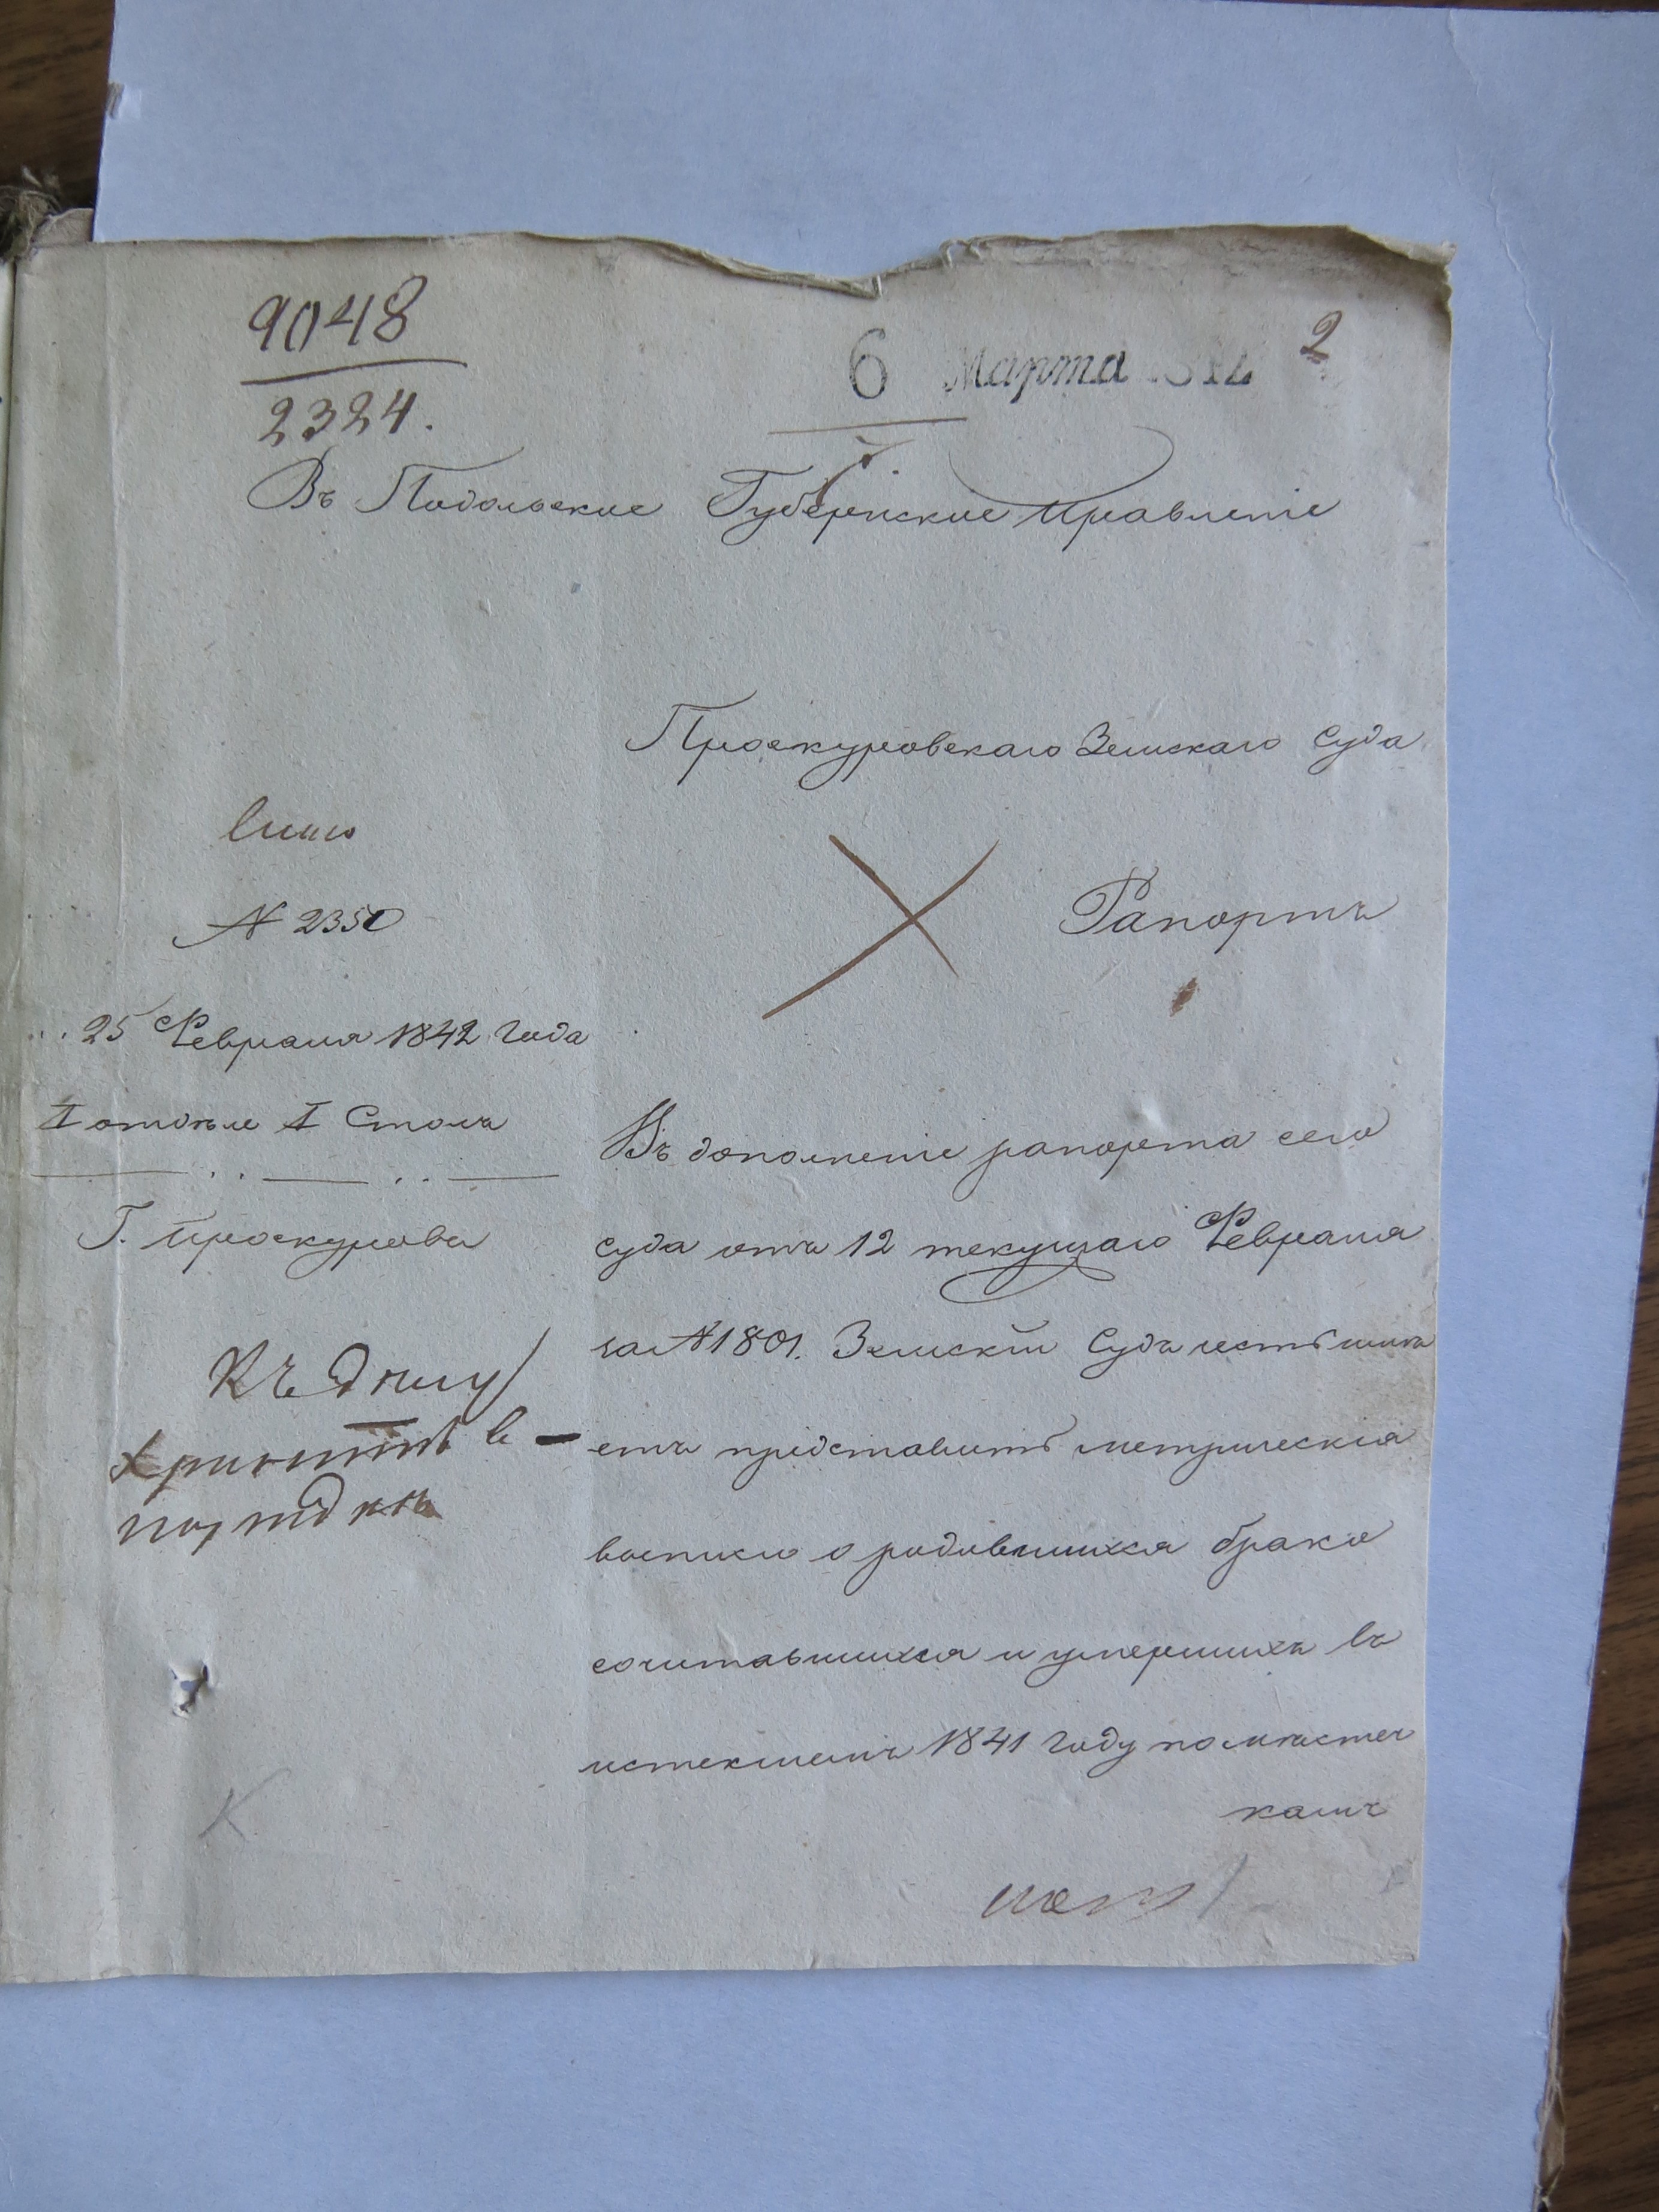 9048
2324.
6 Марта 1842
2
Въ Подольское Губернское Правленіе
Проскуровскаго Земскаго Суда
№ 2350
Рапортъ
25 Февраля 1842 года
I отдѣле I Столъ
Г. Проскуровъ
Въ дополненіе рапорта сего
суда отъ 12 текущаго Февраля
за № 1801. Земскій Судъ честь имѣ
етъ представить метрическія
выписи о родившихся брако
сочитавшихся и умершихъ въ
истекшемъ 1841 году по мѣстеч
камъ
Къ дѣлу
К